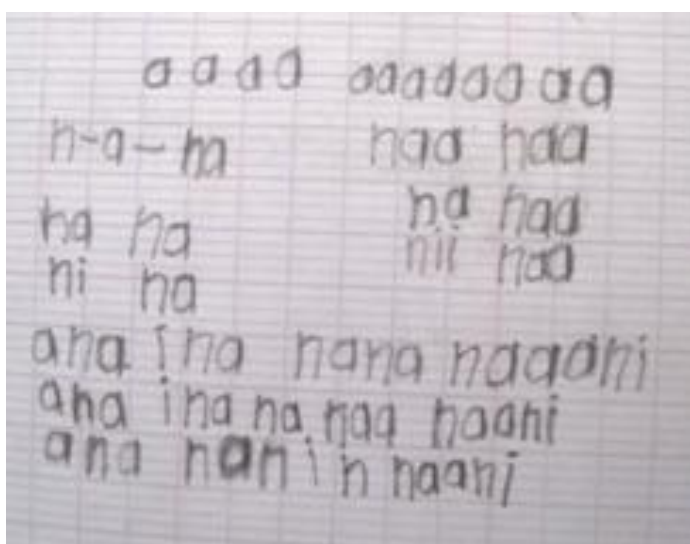 a a a a aaaaaaaa
n-a-na naa naa
na na na naa
ni na nii naa
ana ina nana naaani
ana ina na naa naani
ana nanin naani